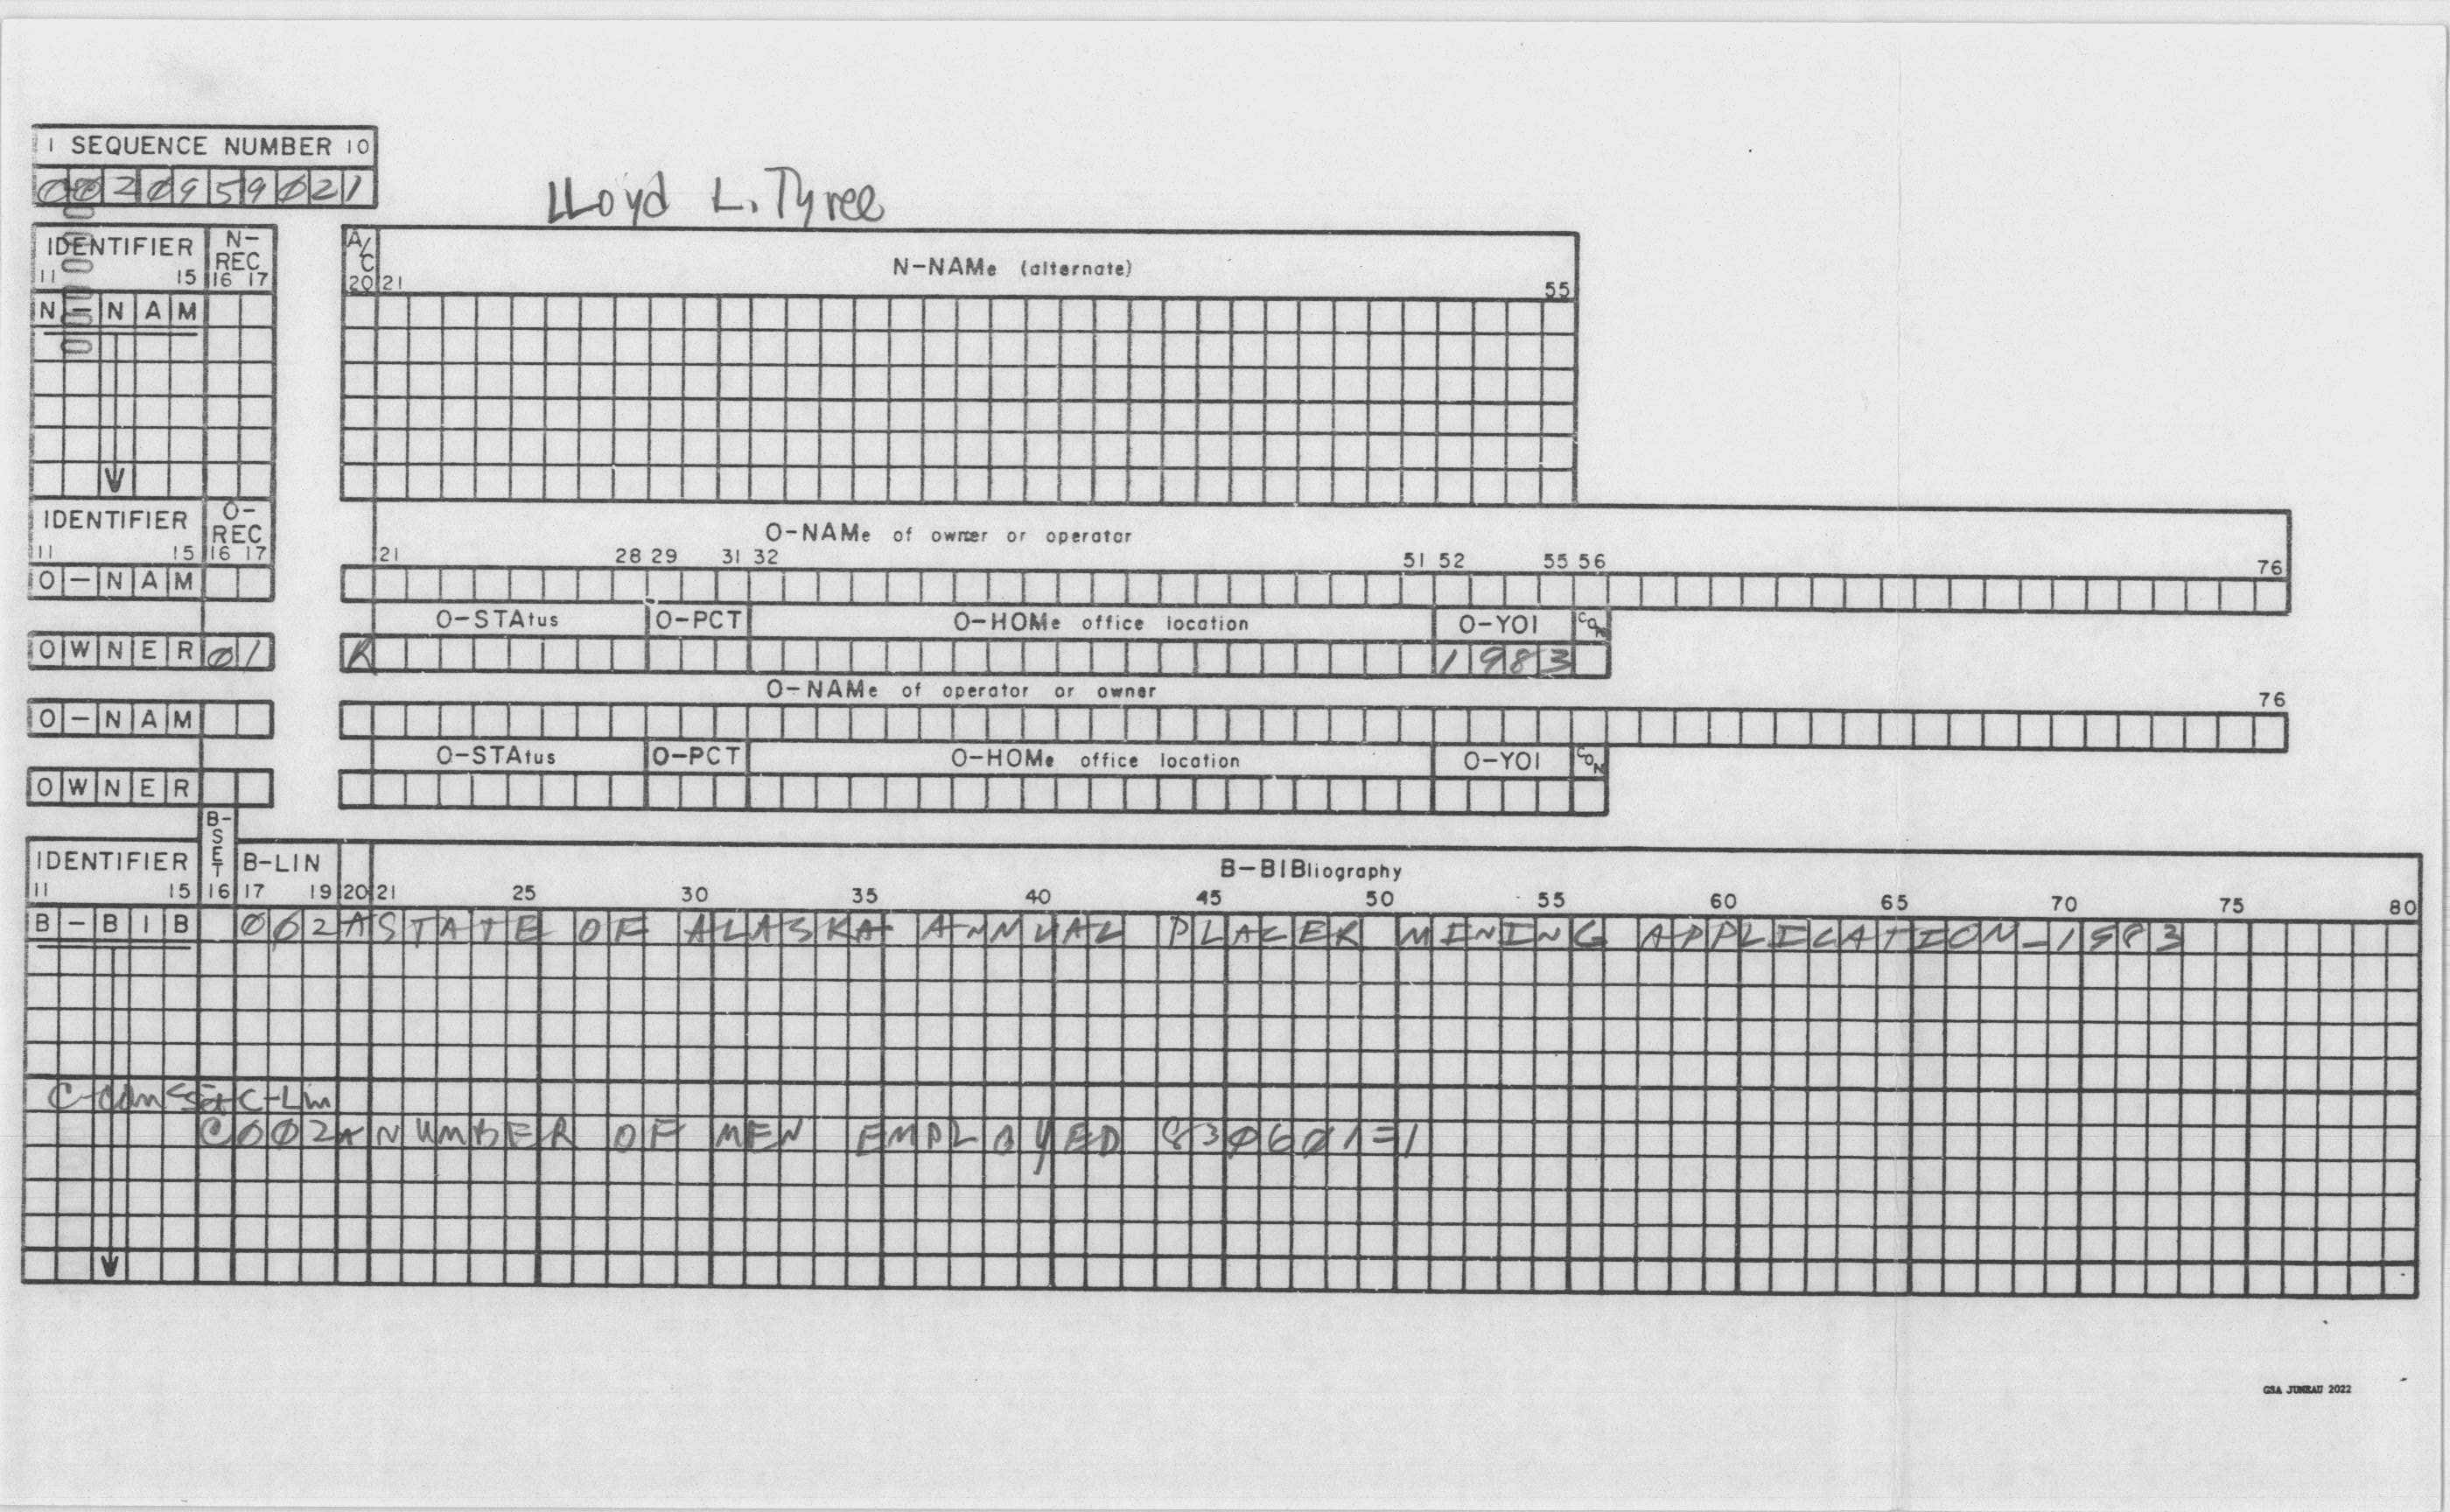 1 SEQUENCE NUMBER 10
0020959021
LLoyd L. Tyree
IDENTIFIER N-REC A/C N-NAMe (alternate)
11 15 16 17 20 21 55
N-NAM
IDENTIFIER O-REC O-NAMe of owner or operator
11 15 16 17 21 28 29 31 32 51 52 55 56 76
O-NAM
O-STAtus O-PCT O-HOMe office location O-YOI CON
OWNER 01 K 1983
O-NAMe of operator or owner 76
O-NAM
O-STAtus O-PCT O-HOMe office location O-YOI CON
OWNER
IDENTIFIER B-SET B-LIN B-BIBliography
11 15 16 17 19 20 21 25 30 35 40 45 50 55 60 65 70 75 80
B-BIB 002A STATE OF ALASKA ANNUAL PLACER MINING APPLICATION-1983
C-Com C-Set C-Lin
C002A NUMBER OF MEN EMPLOYED 830601=1
GSA JUNEAU 2022